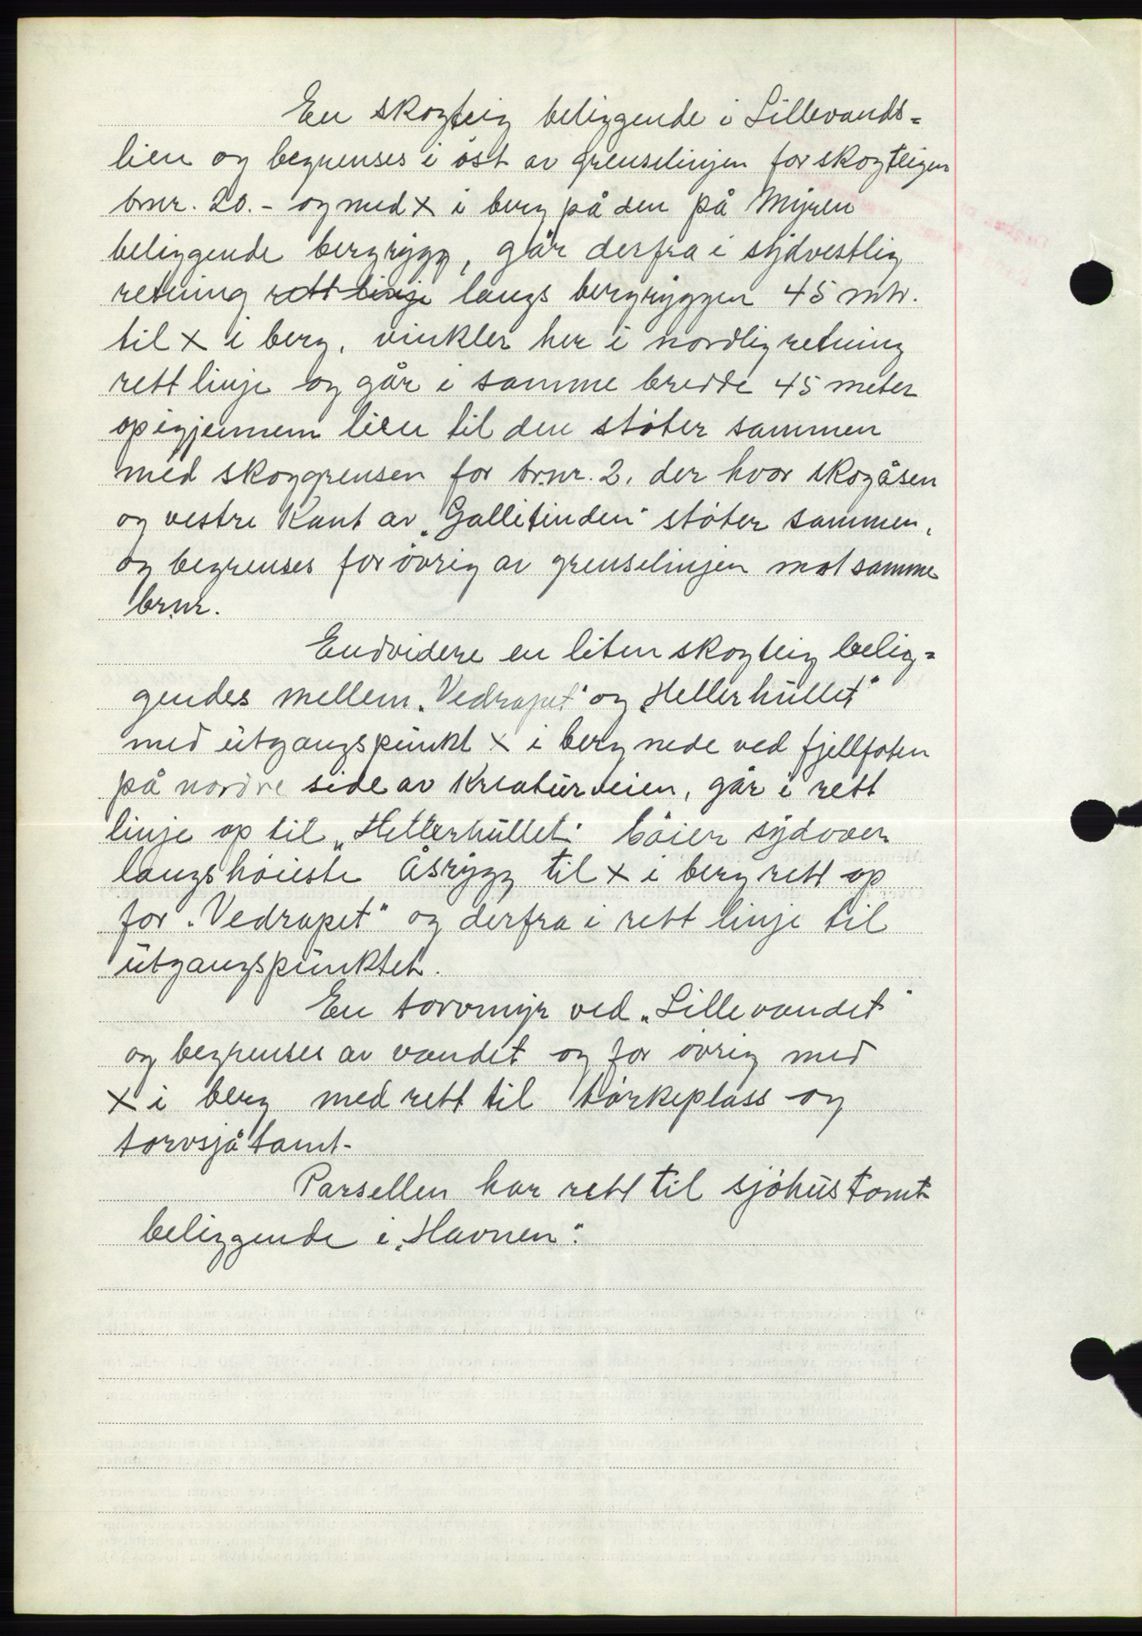 En skogteig beliggende i Lillevands=
lien og begrenses i øst av grenselinjen for skogteigen
brnr. 20.- og med x i berg på den på Myren
beliggende bergrygg, går derfra i sydvestlig
retning rett linje langs bergryggen 45 mtr.
til x i berg, vinkler her i nordlig retning
rett linje og går i samme bredde 45 meter
op igjennem lien til den støter sammen
med skoggrensen for brnr. 2, der hvor skogåsen
og vestre kant av „Gallitinden" støter sammen,
og begrenses for øvrig av grenselinjen mot samme
brnr.
Endvidere en liten skogteig belig=
gendes mellem „Vedrapet" og „Hellerhullet"
med utgangspunkt x i berg nede ved fjellfoten
på nordre side av Kreaturveien, går i rett
linje op til „Hellerhullet" bøier sydover
langs høieste Åsrygg til x i berg rett op
for „Vedrapet" og derfra i rett linje til
utgangspunktet.
En torvmyr ved „Lillevandet"
og begrenses av vandet og for øvrig med
x i berg med rett til tørkeplass og
torvsjåtomt-
Parsellen har rett til sjøhustomt
beliggende i „Havnen".